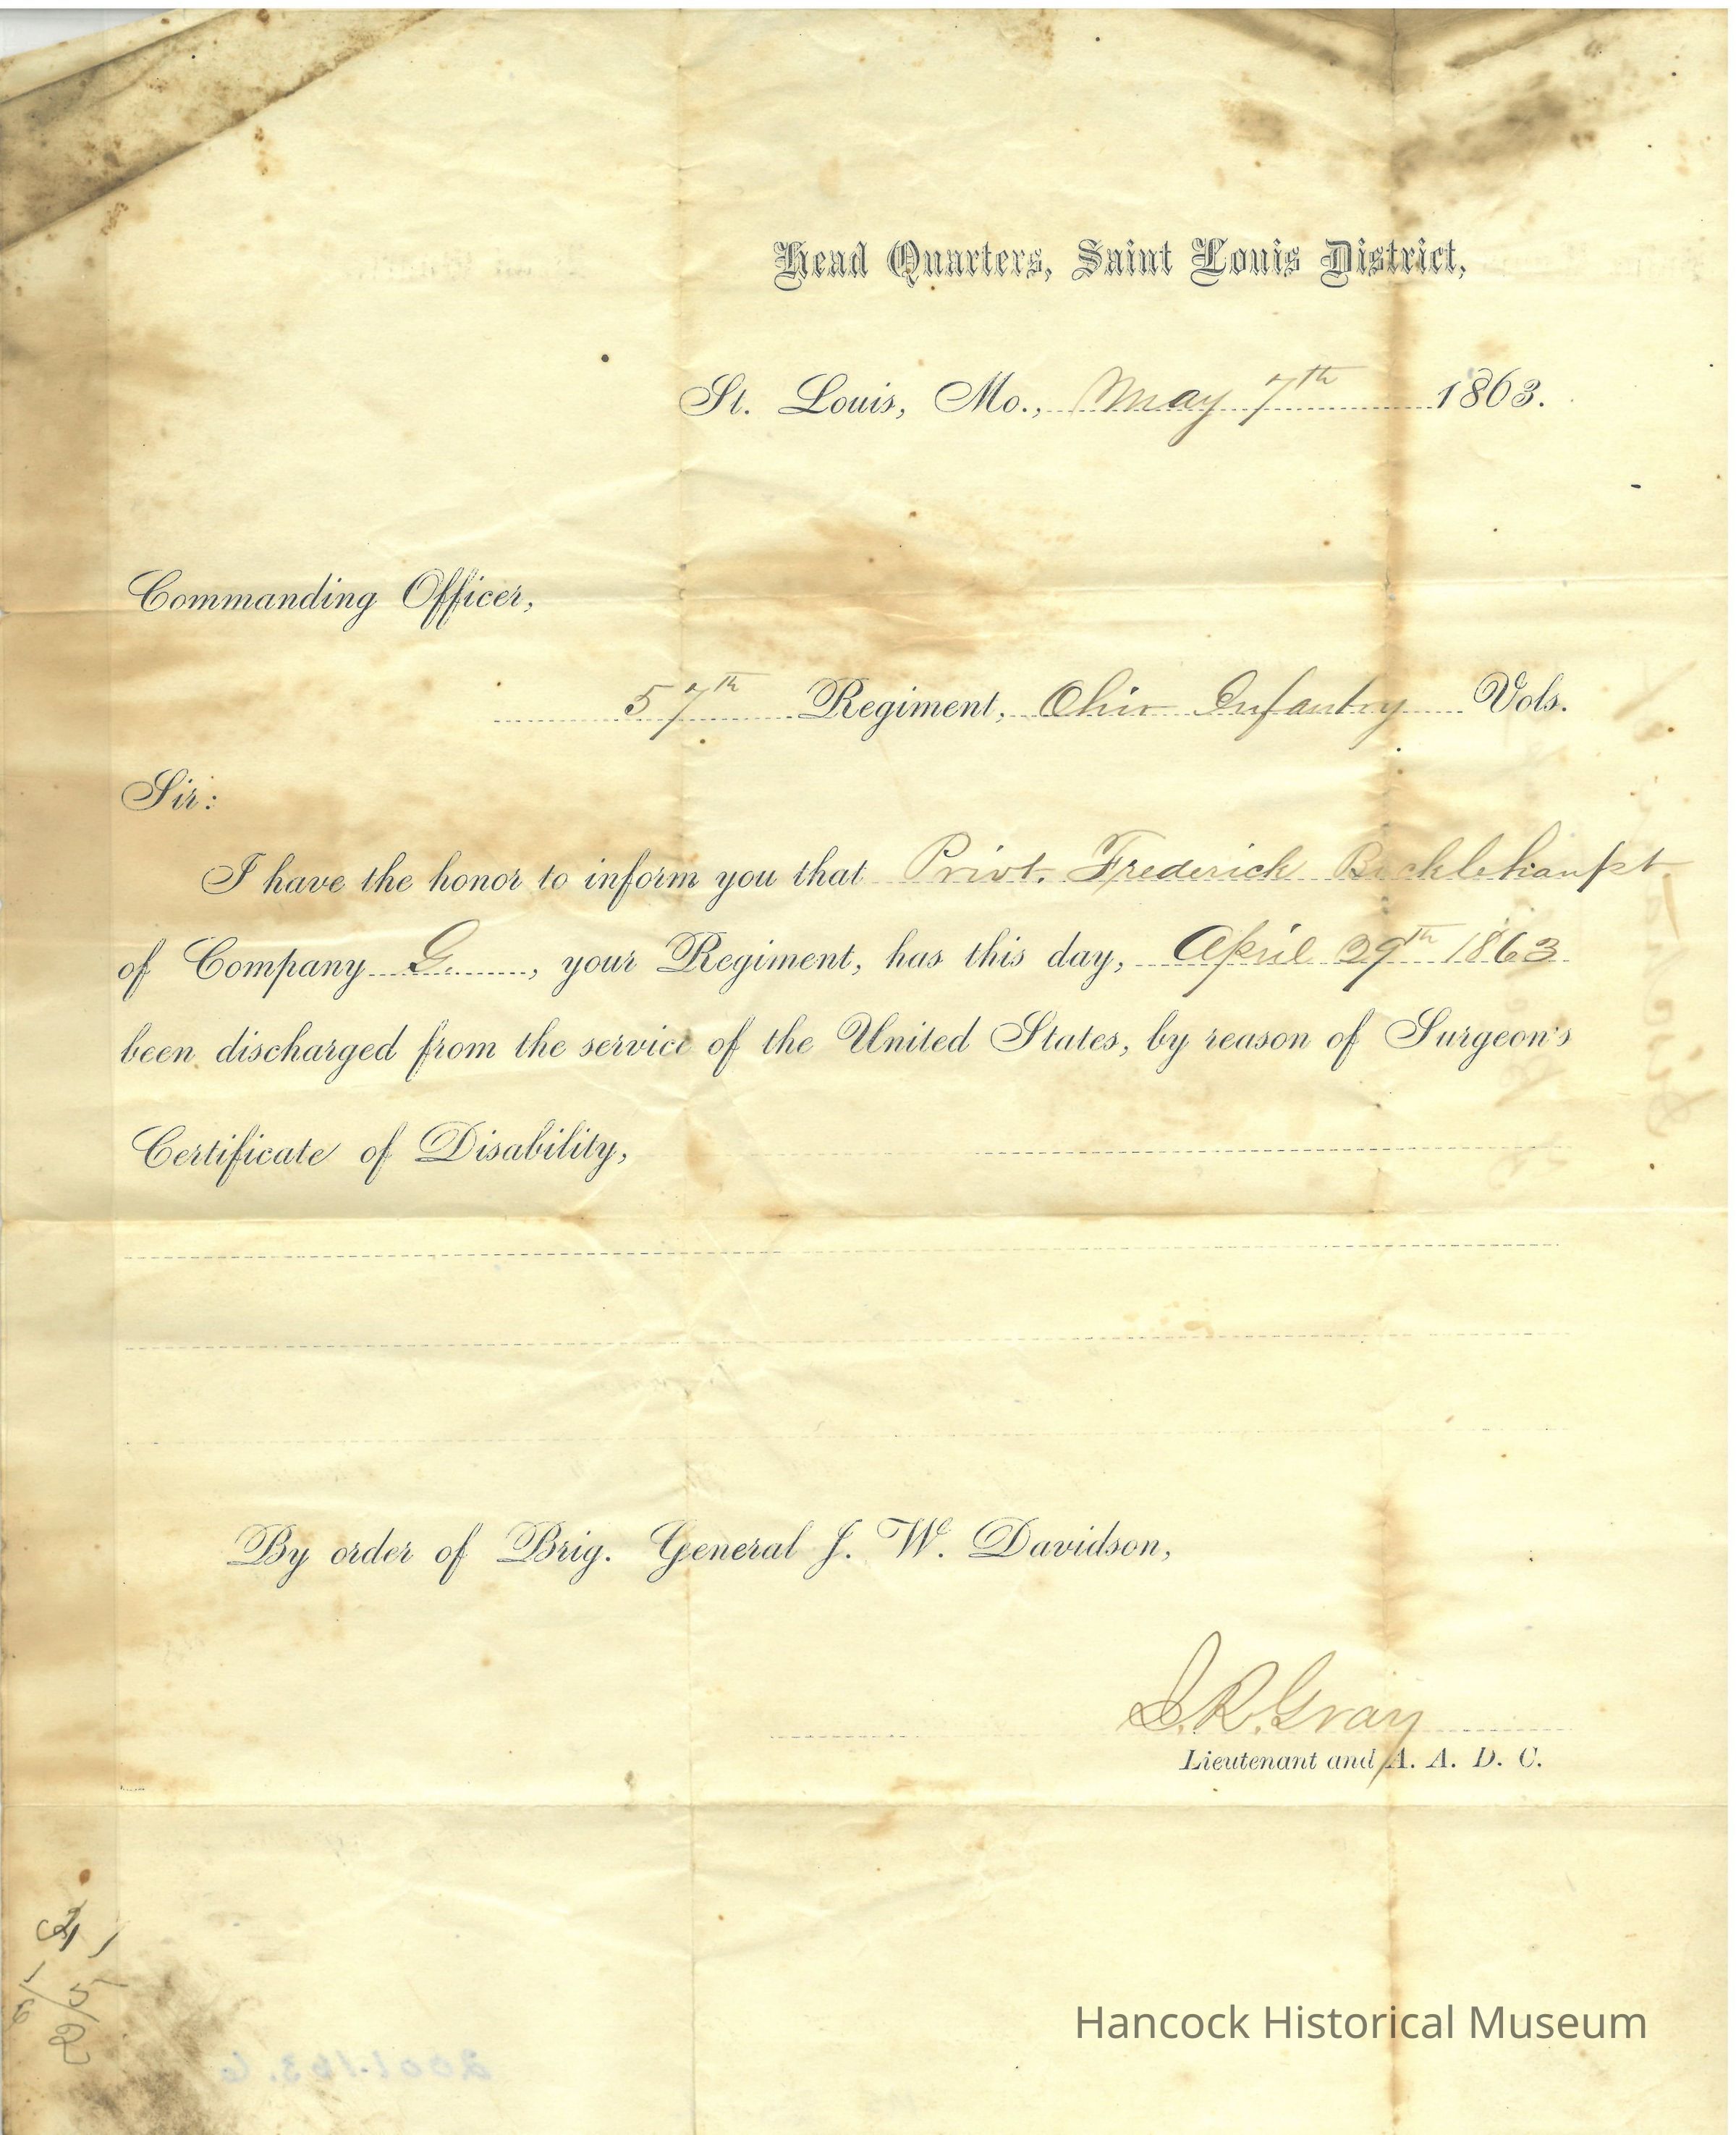 Head Quarters, Saint Louis District,
St. Louis, Mo., May 7th 1863.
Commanding Officer,
57th Regiment, Ohio Infantry Vols.
Sir:
I have the honor to inform you that Privt. Frederick Bucklehaupt
of Company G, your Regiment, has this day, April 29th 1863
been discharged from the service of the United States, by reason of Surgeon's
Certificate of Disability,
By order of Brig. General J. W. Davidson,
S. R. Gray
Lieutenant and A. A. D. C.
Hancock Historical Museum
2001.163.6